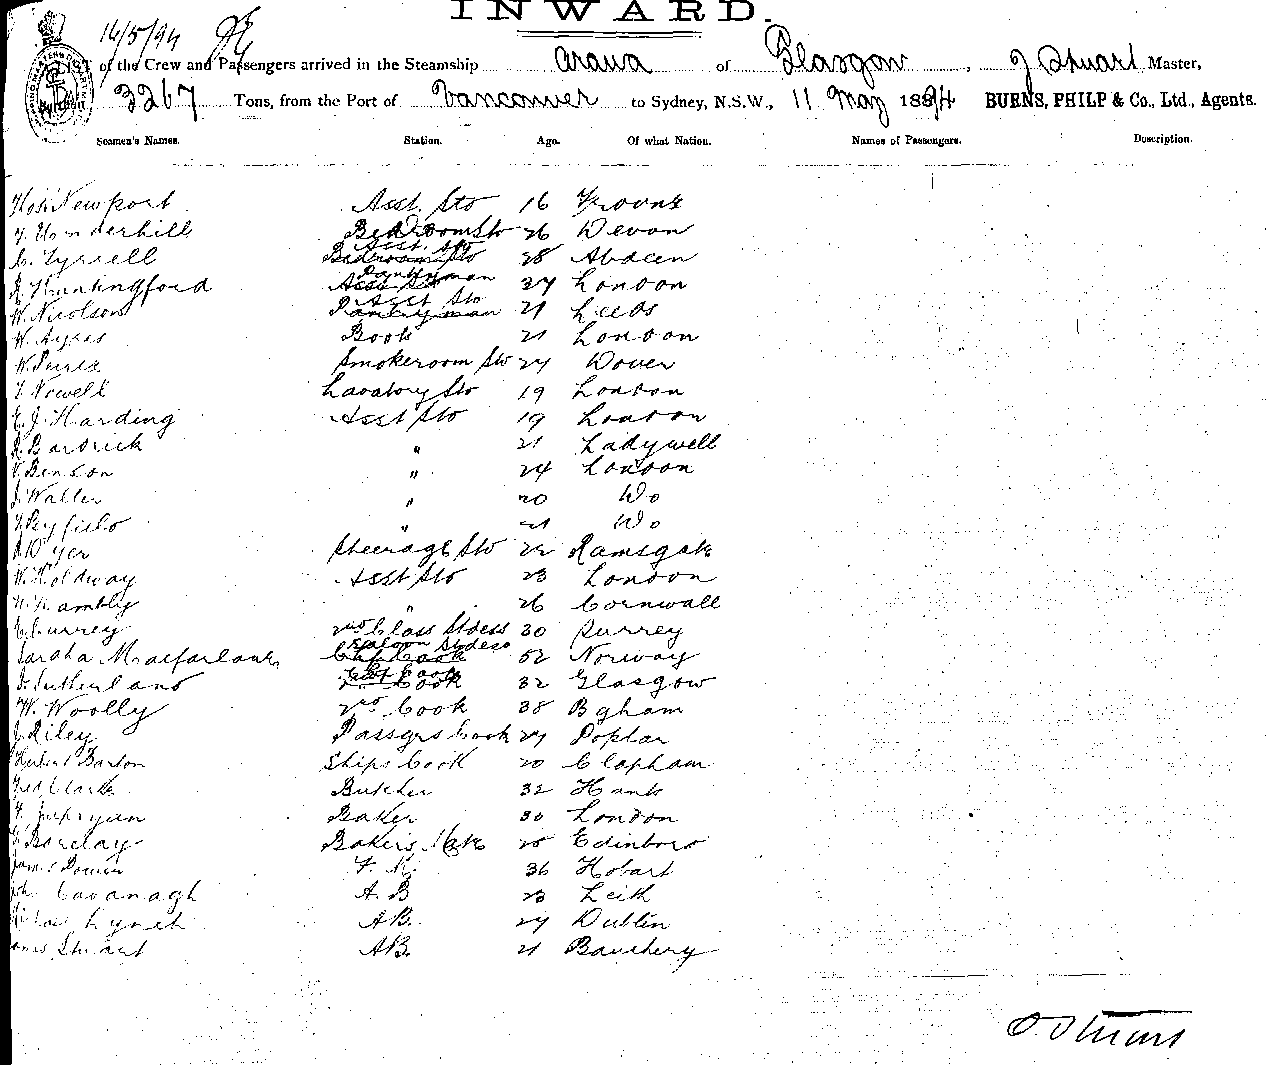 INWARD.
16/5/94
of the Crew and Passengers arrived in the Steamship Arawa of Glasgow, J Stuart Master,
3267 Tons, from the Port of Vancouver to Sydney, N.S.W., 11 May 1894 BURNS, PHILP & Co., Ltd., Agents.
Seamen's Names. Station. Age. Of what Nation. Names of Passengers. Description.
Thos Newport Asst. Std 16
Underhill Bedroom Std 26 Devon
Tyrrell Asst. Std Bedroom Std 28 Abdeen
Huntingford Pantryman Asst Std 27 London
W. Nicolson Asst Std Pantryman 21 Leeds
W. Ayres Boots 21 London
W. Smokeroom Std 24 Dover
Nowell Lavatory Std 19 London
E. J. Harding Asst Std 19 London
Bardrick " 21 Ladywell
Benson " 24 London
J. Waller " 20 Do
Pyfield " 21 Do
Dyer Steerage Std 22 Ramsgate
W. Holdway Asst Std 23 London
Hambly " 26 Cornwall
E. Currey 2nd Class Stdess 30 Surrey
Saraha Macfarlane Saloon Stdess 52 Norway
Sutherland Cook 32 Glasgow
W. Woolly 2nd Cook 38 Bgham
J. Riley Passgrs Cook 27 Poplar
Herbert Barton Ships Cook 20 Clapham
Fred. Clarke Butcher 32 Hants
Baker 30 London
Barclay Bakers Mate 25 Edinboro
James 36 Hobart
John Cavanagh A.B 23 Leith
Lynch AB. 27 Dublin
James Stuart AB. 21
J Stuart